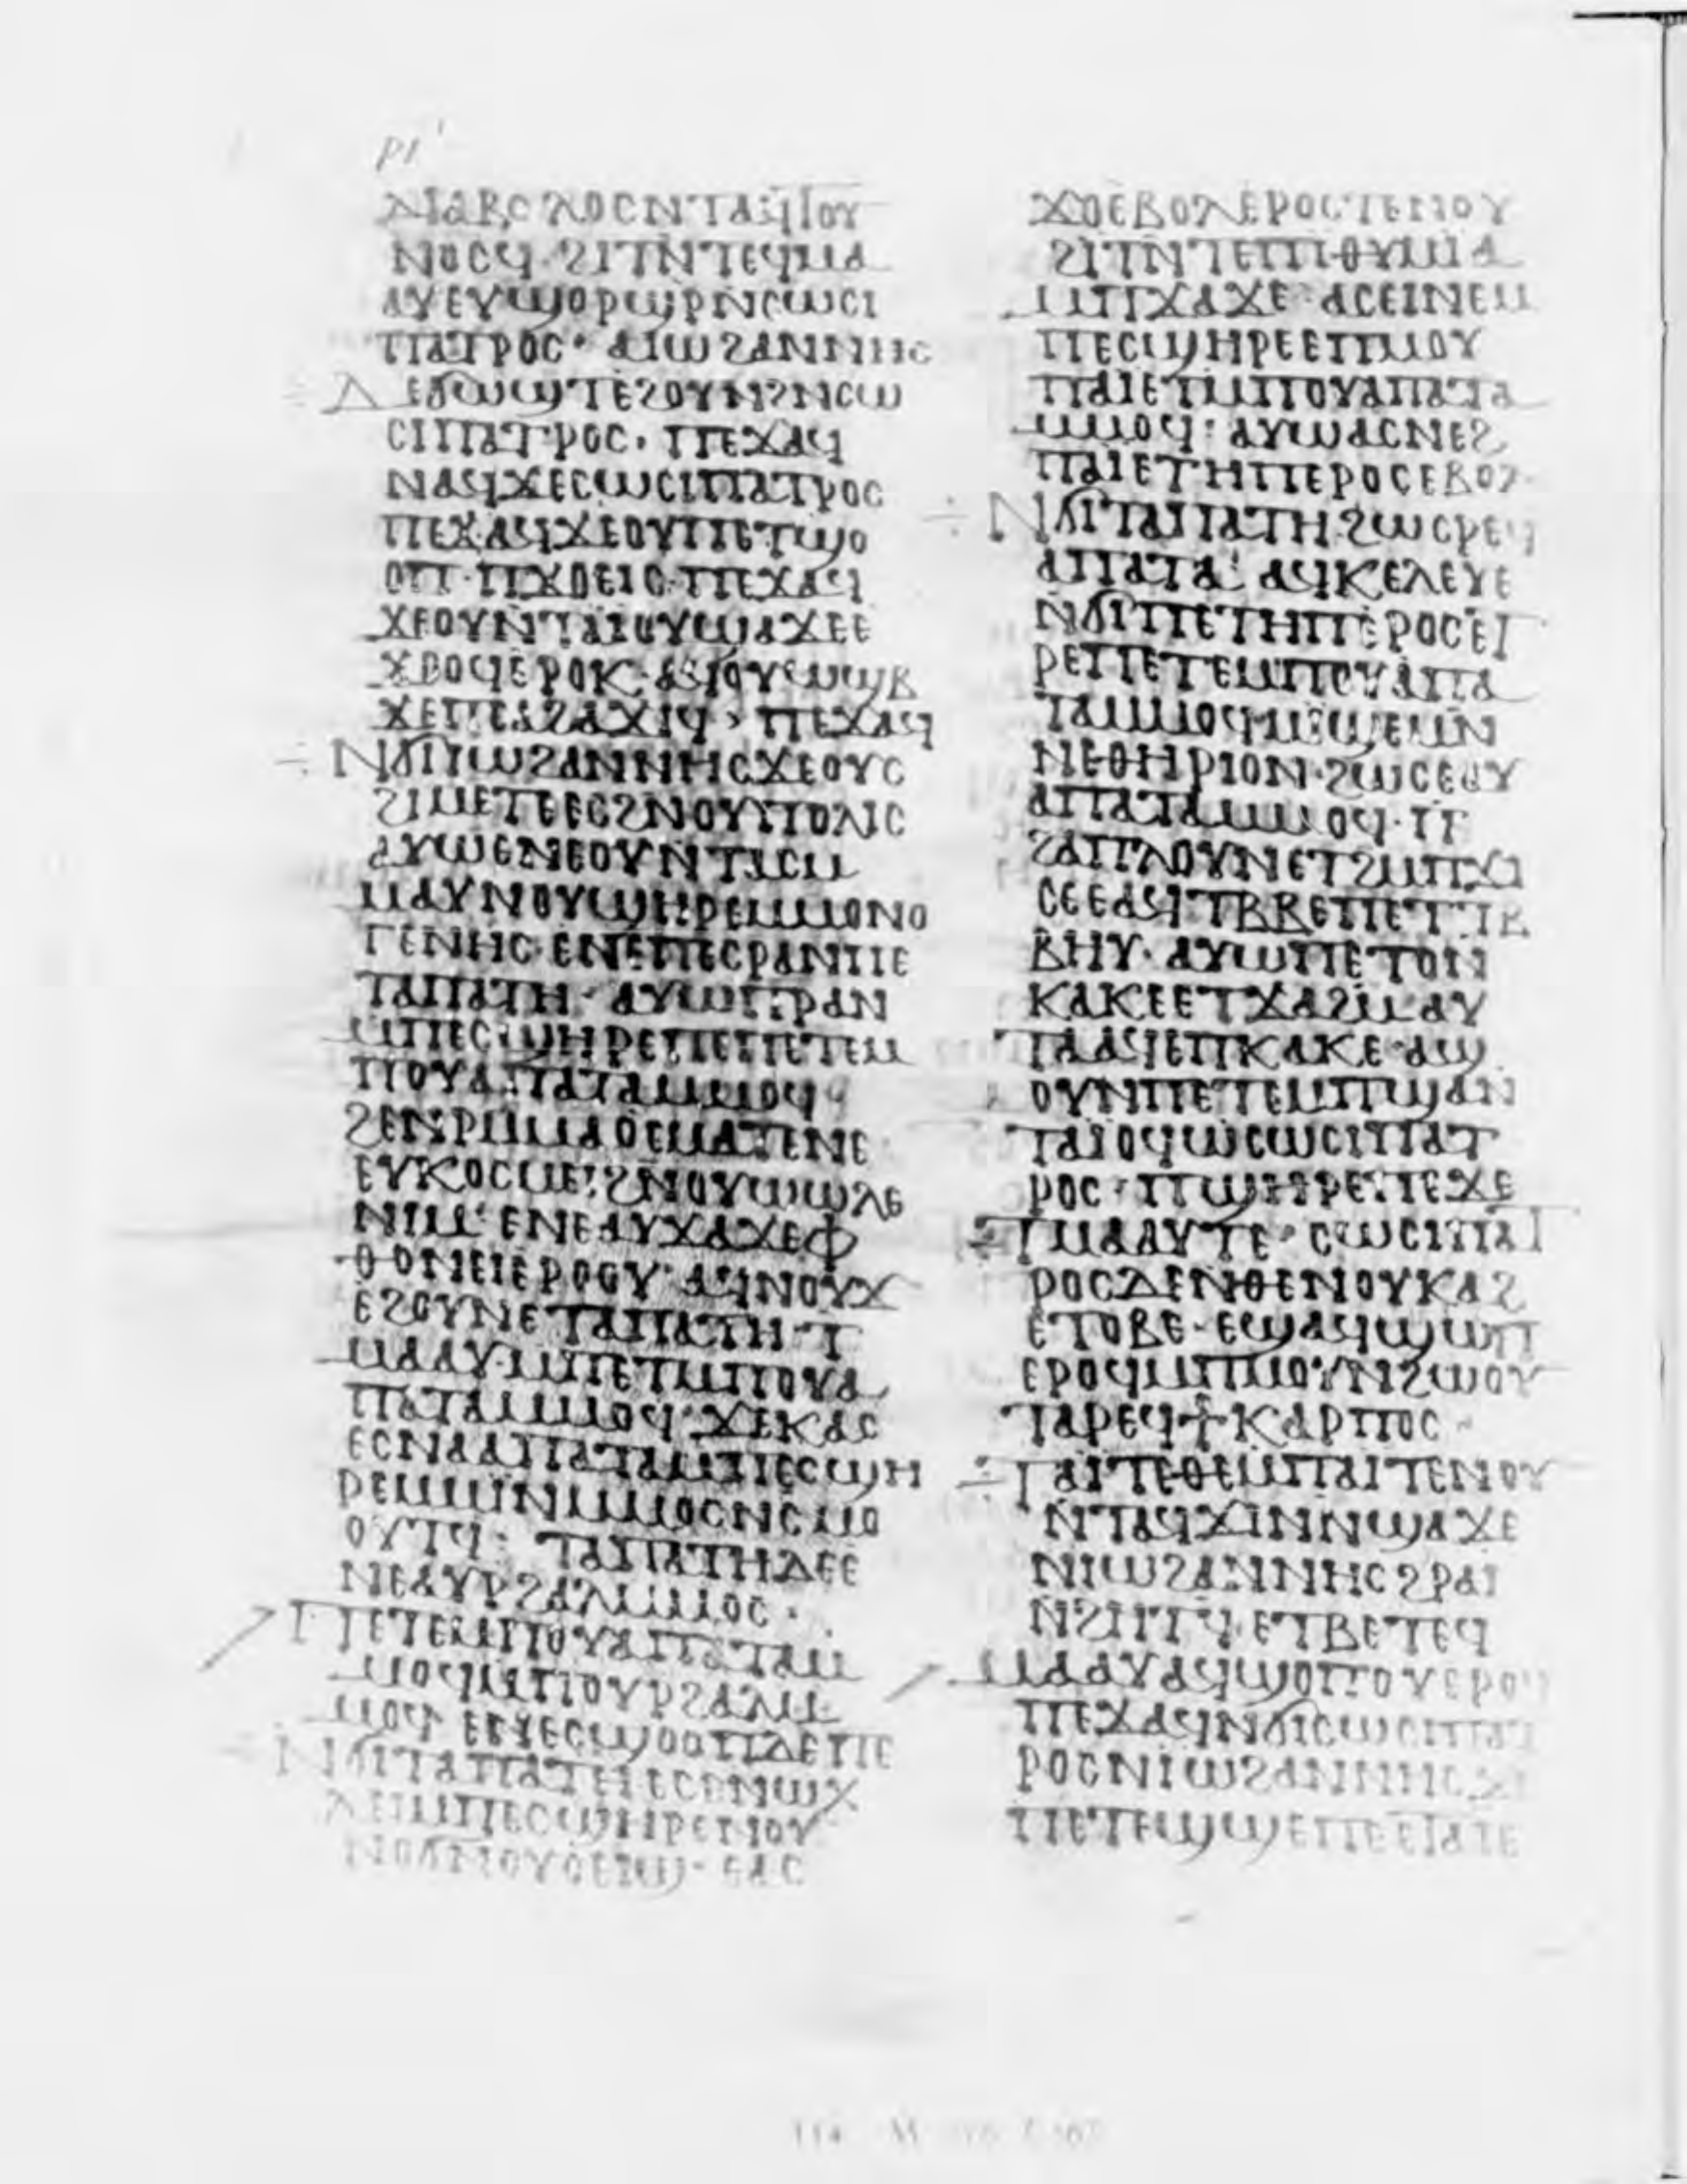 ⲣⲓ
ⲇⲓⲁⲃⲟⲗⲟⲥⲛⲧⲁϥⲡⲟⲩ
ⲛⲟⲥϥ·ϩⲓⲧⲛⲧⲉϥⲙⲁ
ⲁⲩⲉⲩϣⲟⲣϣⲣⲛⲥⲱⲥⲓ
ⲡⲁⲧⲣⲟⲥ·ⲁⲓⲱϩⲁⲛⲛⲏⲥ
ⲇⲉϭⲱϣⲧⲉϩⲟⲩⲛϩⲛⲥⲱ
ⲥⲓⲡⲁⲧⲣⲟⲥ·ⲡⲉϫⲁϥ
ⲛⲁϥϫⲉⲥⲱⲥⲓⲡⲁⲧⲣⲟⲥ
ⲡⲉϫⲁϥϫⲉⲟⲩⲡⲉⲧϣⲟ
ⲟⲡ·ⲡϫⲟⲉⲓⲥ·ⲡⲉϫⲁϥ
ϫⲉⲟⲩⲛⲧⲁⲓⲟⲩϣⲁϫⲉⲉ
ϫⲟⲟϥⲉⲣⲟⲕ·
ⲡⲉϫⲁϥ
ⲛϭⲓⲓⲱϩⲁⲛⲛⲏⲥϫⲉⲟⲩⲥ
ϩⲓⲙⲉⲧⲉⲉⲥϩⲛⲟⲩⲡⲟⲗⲓⲥ
ⲁⲩⲱⲉⲛⲉⲟⲩⲛⲧⲁⲥⲙ
ⲙⲁⲩⲛⲟⲩϣⲏⲣⲉⲙⲙⲟⲛⲟ
ⲅⲉⲛⲏⲥ·ⲉⲛⲉⲡⲉⲥⲣⲁⲛⲡⲉ
ⲧⲁⲡⲁⲧⲏ·ⲁⲩⲱⲡⲣⲁⲛ
ⲙⲡⲉⲥϣⲏⲣⲉⲡⲉⲡⲉⲧⲉⲙ
ⲡⲟⲩⲁⲡⲁⲧⲁⲙⲙⲟϥ
ϩⲉⲛⲣⲙⲙⲁⲟⲉⲙⲁⲧⲉⲛⲉ
ⲉⲩⲕⲟⲥⲙⲉⲓϩⲛⲟⲩⲱⲱⲗⲉ
ⲛⲓⲙ·ⲉⲛⲉⲁⲩϫⲁϫⲉⲫ
ⲑⲟⲛⲉⲓⲉⲣⲟⲟⲩ·ⲁϥⲛⲟⲩϫ
ⲉϩⲟⲩⲛⲉⲧⲁⲡⲁⲧⲏ·ⲧ
ⲙⲁⲁⲩ·ⲙⲡⲉⲧⲙⲡⲟⲩⲁ
ⲡⲁⲧⲁⲙⲙⲟϥ·ϫⲉⲕⲁⲥ
ⲉⲥⲛⲁⲁⲡⲁⲧⲁⲙⲡⲉⲥϣⲏ
ⲣⲉⲙⲙⲓⲛⲙⲙⲟⲥⲛⲥⲙⲟ
ⲟⲩⲧϥ:ⲧⲁⲡⲁⲧⲏⲇⲉⲉ
ⲛⲉⲁⲩⲣϩⲁⲗⲙⲙⲟⲥ·
ⲡⲉⲧⲉⲙⲡⲟⲩⲁⲡⲁⲧⲁⲙ
ⲙⲟϥⲙⲡⲟⲩⲣϩⲁⲗⲙ
ⲙⲟϥ
ⲛϭⲓⲧⲁⲡⲁⲧⲏ
ⲙⲡⲉⲥϣⲏⲣⲉ
ⲛⲟϭⲛⲟⲩⲟⲉⲓϣ·ⲉⲁⲥ
ϫⲟⲉⲃⲟⲗⲉⲣⲟⲥⲧⲉⲛⲟⲩ
ϩⲓⲧⲛⲧⲉⲡⲓⲑⲩⲙⲓⲁ
ⲙⲡϫⲁϫⲉ·ⲁⲥⲉⲓⲛⲉⲙ
ⲡⲉⲥϣⲏⲣⲉⲉⲡⲙⲟⲩ
ⲡⲁⲓⲉⲧⲙⲡⲟⲩⲁⲡⲁⲧⲁ
ⲙⲙⲟϥ:ⲁⲩⲱⲁⲥⲛⲉϩ
ⲡⲁⲓⲉⲧⲏⲡⲉⲣⲟⲥⲉⲃⲟⲗ·
ⲛϭⲓⲧⲁⲡⲁⲧⲏ·ϩⲱⲥⲣⲉϥ
ⲁⲡⲁⲧⲁ:ⲁϥⲕⲉⲗⲉⲩⲉ
ⲛϭⲓⲡⲉⲧⲏⲡⲉⲣⲟⲥⲉⲧ
ⲣⲉⲡⲉⲧⲉⲙⲡⲟⲩⲁⲡⲁ
ⲧⲁⲙⲙⲟϥⲙⲓϣⲉⲙⲛ
ⲛⲉⲑⲏⲣⲓⲟⲛ·ϩⲱⲥⲉⲁⲩ
ⲁⲡⲁⲧⲁⲙⲙⲟϥ·ⲡⲉ
ϩⲁⲡⲗⲟⲩⲛⲉⲧϩⲙⲡϫⲓ
ⲥⲉⲉⲁϥⲧⲃⲃⲉⲡⲉⲧⲧⲃ
ⲃⲏⲩ·ⲁⲩⲱⲡⲉⲧⲟⲛ
ⲕⲁⲕⲉⲉⲧϫⲁϩⲙⲁⲩ
ⲧⲁⲁϥⲉⲡⲕⲁⲕⲉ·ⲁϣ
ⲟⲩⲛⲡⲉⲧⲉⲙⲡϣⲁⲛ
ⲧⲁⲓⲟϥⲱⲥⲱⲥⲓⲡⲁⲧ
ⲣⲟⲥ·ⲡϣⲏⲣⲉⲡⲉϫⲉ
ⲧⲙⲁⲁⲩⲧⲉ·ⲥⲱⲥⲓⲡⲁⲧ
ⲣⲟⲥⲇⲉⲛⲑⲉⲛⲟⲩⲕⲁϩ
ⲉⲧⲟⲃⲉ·ⲉϣⲁϥϣⲱⲡ
ⲉⲣⲟϥⲙⲡⲙⲟⲩⲛϩⲱⲟⲩ
ⲧⲁⲣⲉϥϯⲕⲁⲣⲡⲟⲥ·
ⲧⲁⲓⲧⲉⲑⲉⲙⲡⲁⲓⲧⲉⲛⲟⲩ
ⲛⲧⲁϥϫⲓⲛⲛϣⲁϫⲉ
ⲛⲓⲱϩⲁⲛⲛⲏⲥϩⲣⲁⲓ
ⲛϩⲏⲧϥ·ⲉⲧⲃⲉⲧⲉϥ
ⲙⲁⲁⲩⲁϥϣⲟⲡⲟⲩⲉⲣⲟϥ
ⲡⲉϫⲁϥⲛϭⲓⲥⲱⲥⲓⲡⲁⲧ
ⲣⲟⲥⲛⲓⲱϩⲁⲛⲛⲏⲥϫⲉ
ⲡⲉⲧⲉϣϣⲉⲡⲉⲉⲓⲁⲧⲉ